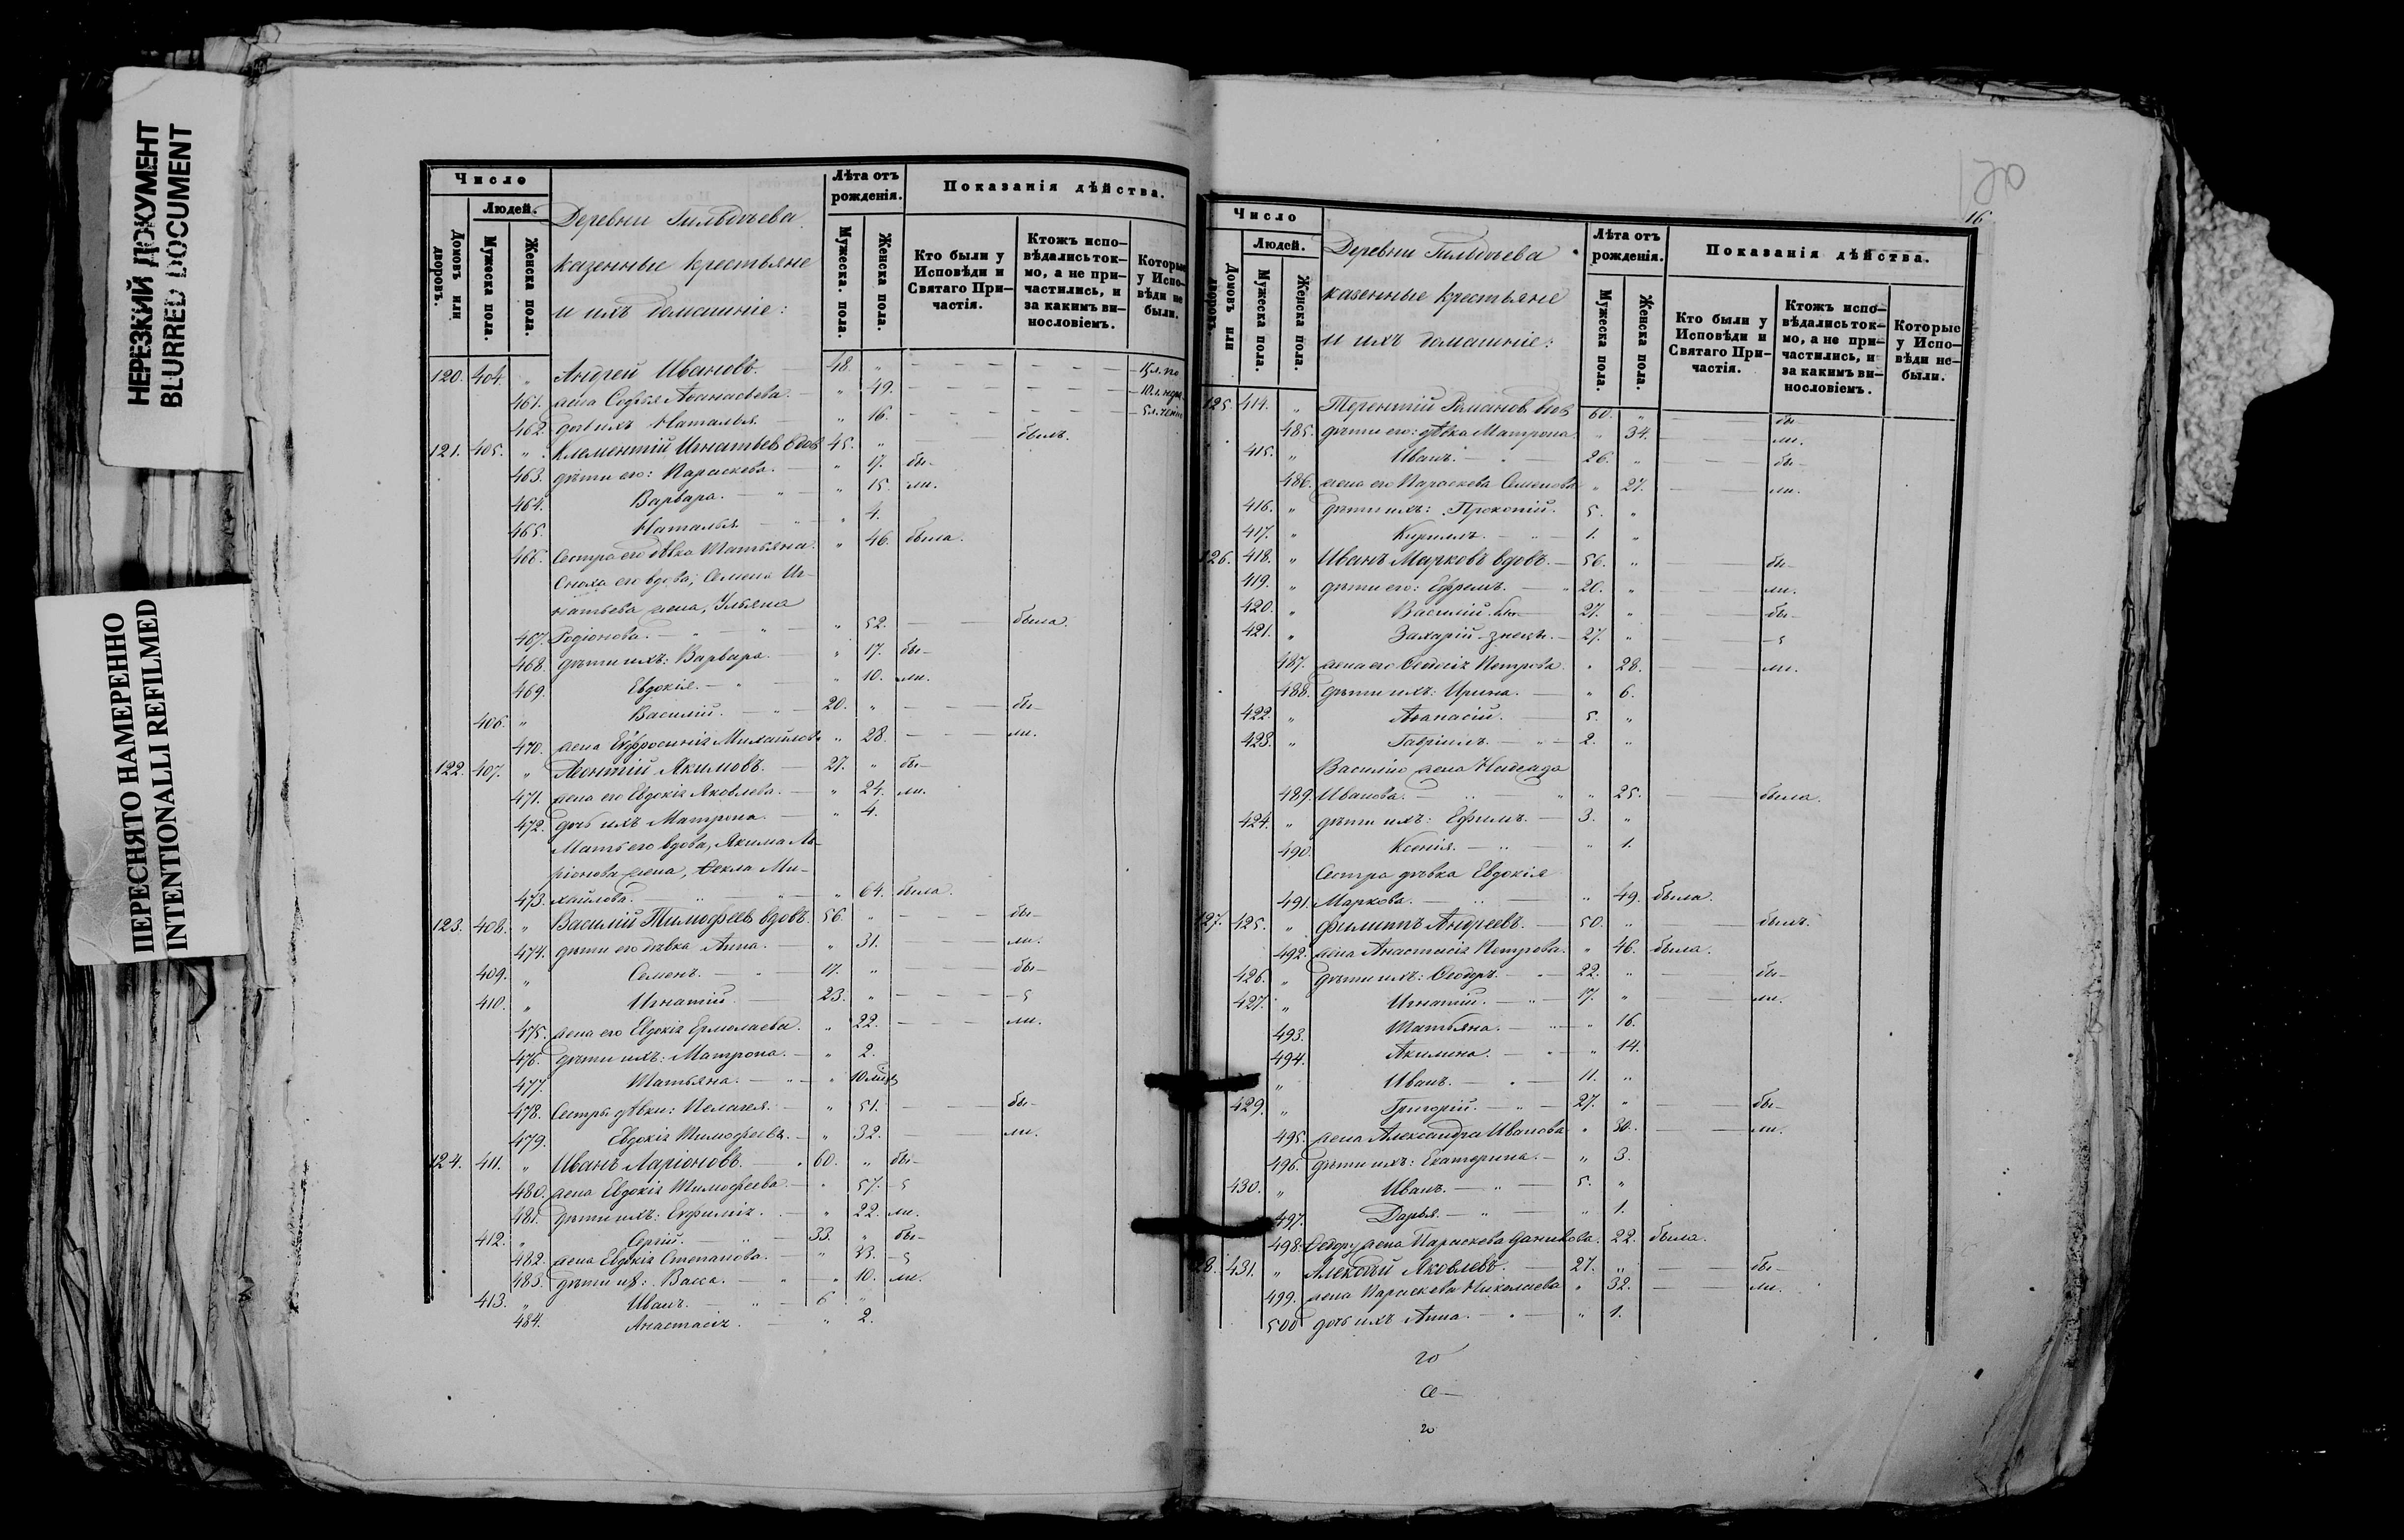 НЕРЕЗКИЙ ДОКУМЕНТ
BLURRED DOCUMENT
ПЕРЕСНЯТО НАМЕРЕННО
INTENTIONALLI REFILMED
Число
Людей.
Домовъ или дворовъ.
Мужеска пола.
Женска пола.
Деревни Гильдѣева
казенные крестьяне
и ихъ домашніе:
Лѣта отъ рожденія.
Мужеска. пола.
Женска пола.
Показанія дѣйства.
Кто были у Исповѣди и Святаго При-частія.
Ктожъ испо-вѣдались ток-мо, а не при-частились, и за какимъ ви-нословіемъ.
Которые у Испо-вѣди не были.
120. 404. " Андрей Ивановъ. 48. "
461. жена Софья Аѳанасьева. " 49.
462. дочь ихъ Наталья. " 16.
121. 405. " Климентій Игнатьевъ вдов 45. " былъ.
463. дѣти его: Параскева. " 17. бы-
464. Варвара. " 15. ли.
465. Наталья " 4.
466. Сестра его дѣвка Татьяна. " 46. была.
Сноха его вдова, Семена Иг-
натьева жена, Ульяна
467. Родіонова. " 52. была.
468. дѣти ихъ: Варвара. " 17. бы-
469. Евдокія. " 10. ли.
406. " Василій. 20. " бы-
470. жена Евфросинія Михайлова " 28. ли.
122. 407. " Леонтій Якимовъ. 27. " бы-
471. жена его Евдокія Яковлева. " 24. ли.
472. дочь ихъ Матрона. " 4.
Мать его вдова, Якима Ла-
ріонова жена, Ѳекла Ми-
473. хайлова. " 64. была.
123. 408. " Василій Тимофеевъ вдовъ. 56. " бы-
474. дѣти его дѣвка Анна. " 31. ли.
409. " Семенъ. 17. " бы-
410. " Игнатій. 23. "
475. жена его Евдокія Ермолаева. " 22. ли.
476. дѣти ихъ: Матрона. " 2.
477. Татьяна. " 10
478. Сестры дѣвки: Пелагея. " 51. бы-
479. Евдокія Тимофеевы. " 32. ли.
124. 411. " Иванъ Ларіоновъ. 60. " бы-
480. жена Евдокія Тимофеева. " 57.
481. дѣти ихъ: Евфимія. " 22. ли.
412. " Сергій. 33. " бы-
482. жена Евдокія Степанова. " 33.
483. дѣти их: Васса. " 10. ли.
413. " Иванъ. 6 "
484. Анастасія. " 2.
20
16
Число
Людей.
Домовъ или дворовъ.
Мужеска пола.
Женска пола.
Деревни Гильдѣева
казенные крестьяне
и ихъ домашніе:
Лѣта отъ рожденія.
Мужеска пола.
Женска пола.
Показанія дѣйства.
Кто были у Исповѣди и Святаго При-частія.
Ктожъ испо-вѣдались ток-мо, а не при-частились, и за какимъ ви-нословіемъ.
Которые у Испо-вѣди не-были.
125. 414. " Терентій Романовъ вдов 60. " бы-
485. дѣти его: дѣвка Матрона. " 34. ли.
415. " Иванъ. 26. " бы-
486. жена его Параскева Семенова " 27. ли.
416. " дѣти ихъ: Прокопій. 5. "
417. " Кириллъ. 1. "
126. 418. " Иванъ Марковъ вдовъ. 56. " бы-
419. " дѣти его: Ефремъ. 20. " ли.
420. " Василій. 27. " бы-
421. " Захарій 27. "
487. жена его Ѳеодосія Петрова. " 28. ли.
488. дѣти ихъ: Ирина. " 6.
422. " Аѳанасій. 5. "
423. " Гавріилъ. 2. "
Василію жена Надежда
489. Иванова. " 25. была.
424. " дѣти ихъ: Ефимъ. 3. "
490. Ксенія. " 1.
Сестра дѣвка Евдокія
491. Маркова. " 49. была.
127. 425. " Филиппъ Андреевъ. 50. " былъ.
492. жена Анастасія Петрова. " 46. была.
426. " дѣти ихъ: Ѳеодоръ. 22. " бы-
427. " Игнатій. 17. " ли.
493. Татьяна. " 16.
494. Акилина. " 14.
" Иванъ. 11. "
429. " Григорій. 27. " бы-
495. жена Александра Иванова " 30. ли.
496. дѣти ихъ: Екатерина. " 3.
430. " Иванъ. 5. "
497. Дарья. " 1.
498. Ѳедору жена Параскева Данилова. 22. была.
28. 431. " Алексѣй Яковлевъ. 27. " бы-
499. жена Параскева Николаева " 32. ли.
500 дочь ихъ Анна. " 1.